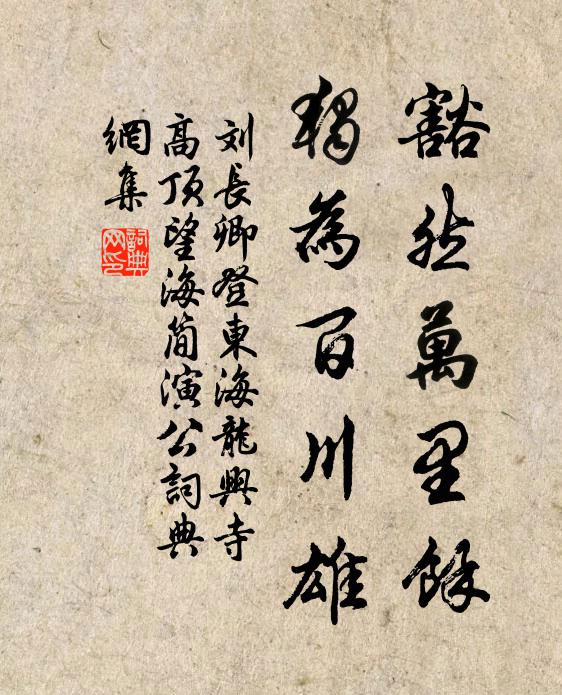 豁然萬里餘
獨為百川雄
刘長卿登東海龍興寺
高頂望海簡演公詞典
網集
詞典
网印